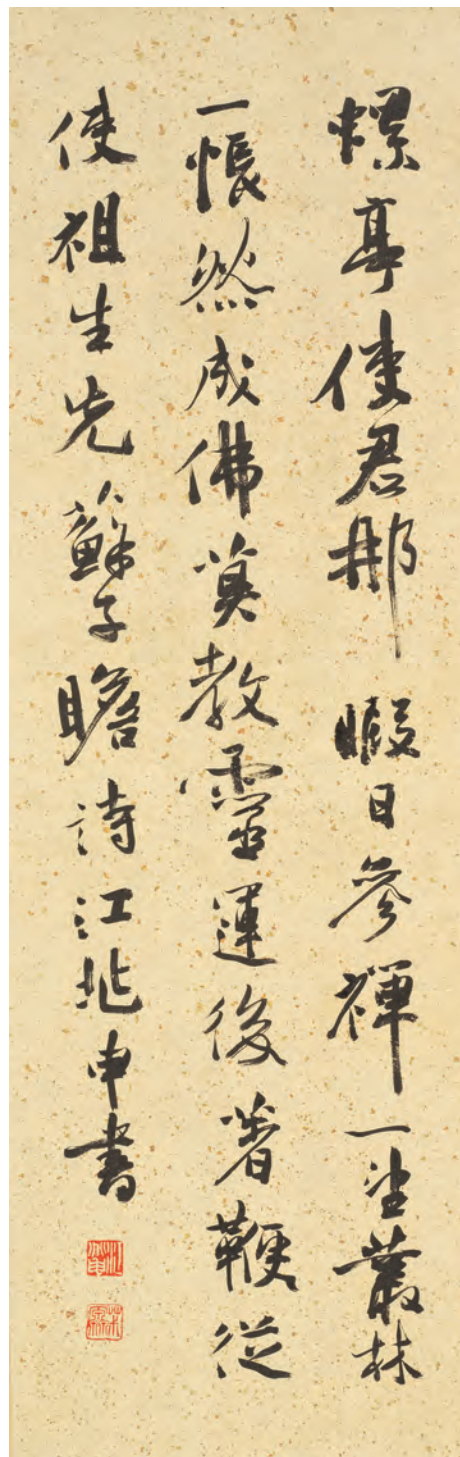 螺亭使君那暇日參禪一望叢林
一悵然成佛莫教靈運後著鞭從
使祖生先蘇子瞻詩江兆申書